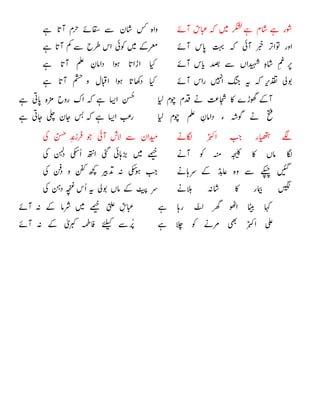 شور ہے شام ہے لشکر میں کہ عباسؑ آئے
واہ کس شان سے سقائے حرم آتا ہے
اور تواتر خبر آئی کہ بہت پاس آئے
معرکے میں کوئی اس طرح سے کم آتا ہے
پر غمِ شاہِ شہیداں سے بصد یاس آئے
کیا اڑاتا ہوا دامانِ علم آتا ہے
بولی تقدیر کہ یہ جنگ انہیں راس آئے
کیا دکھاتا ہوا اقبال و حشم آتا ہے
آکے گھوڑے کا شجاعت نے قدم چوم لیا
حُسن ایسا ہے کہ اک روح مزہ پاتی ہے
فتح نے گوشہ ء دامانِ علم چوم لیا
رعب ایسا ہے کہ بس جان چلی جاتی ہے
لگے ہتھیار جب اکبرؑ لگانے
میدان سے لاش آئی جو فرزندِ حسنؑ کی
لگا ماں کا کلیجہ منہ کو آنے
خیمے میں بڑھائی گئی اُسکی دلہن کی
گئیں چپکے سے وہ عابدؑ کے سرہانے
جب ہوسکی نہ تدبیر کچھ کفن و دفن کی
لگیں بیمار کا شانہ ہلانے
سر پیٹ کے ماں بولی یہ اُس غنچہ دہن کی
کہا بیٹا اٹھو گھر لٹ رہا ہے
عباسؑ علیؑ خیمے میں شرما کے نہ آئے
علی اکبرؑ بھی مرنے کو چلا ہے
پُرسے کیلئے فاطمہ کبریٰؑ کے نہ آئے